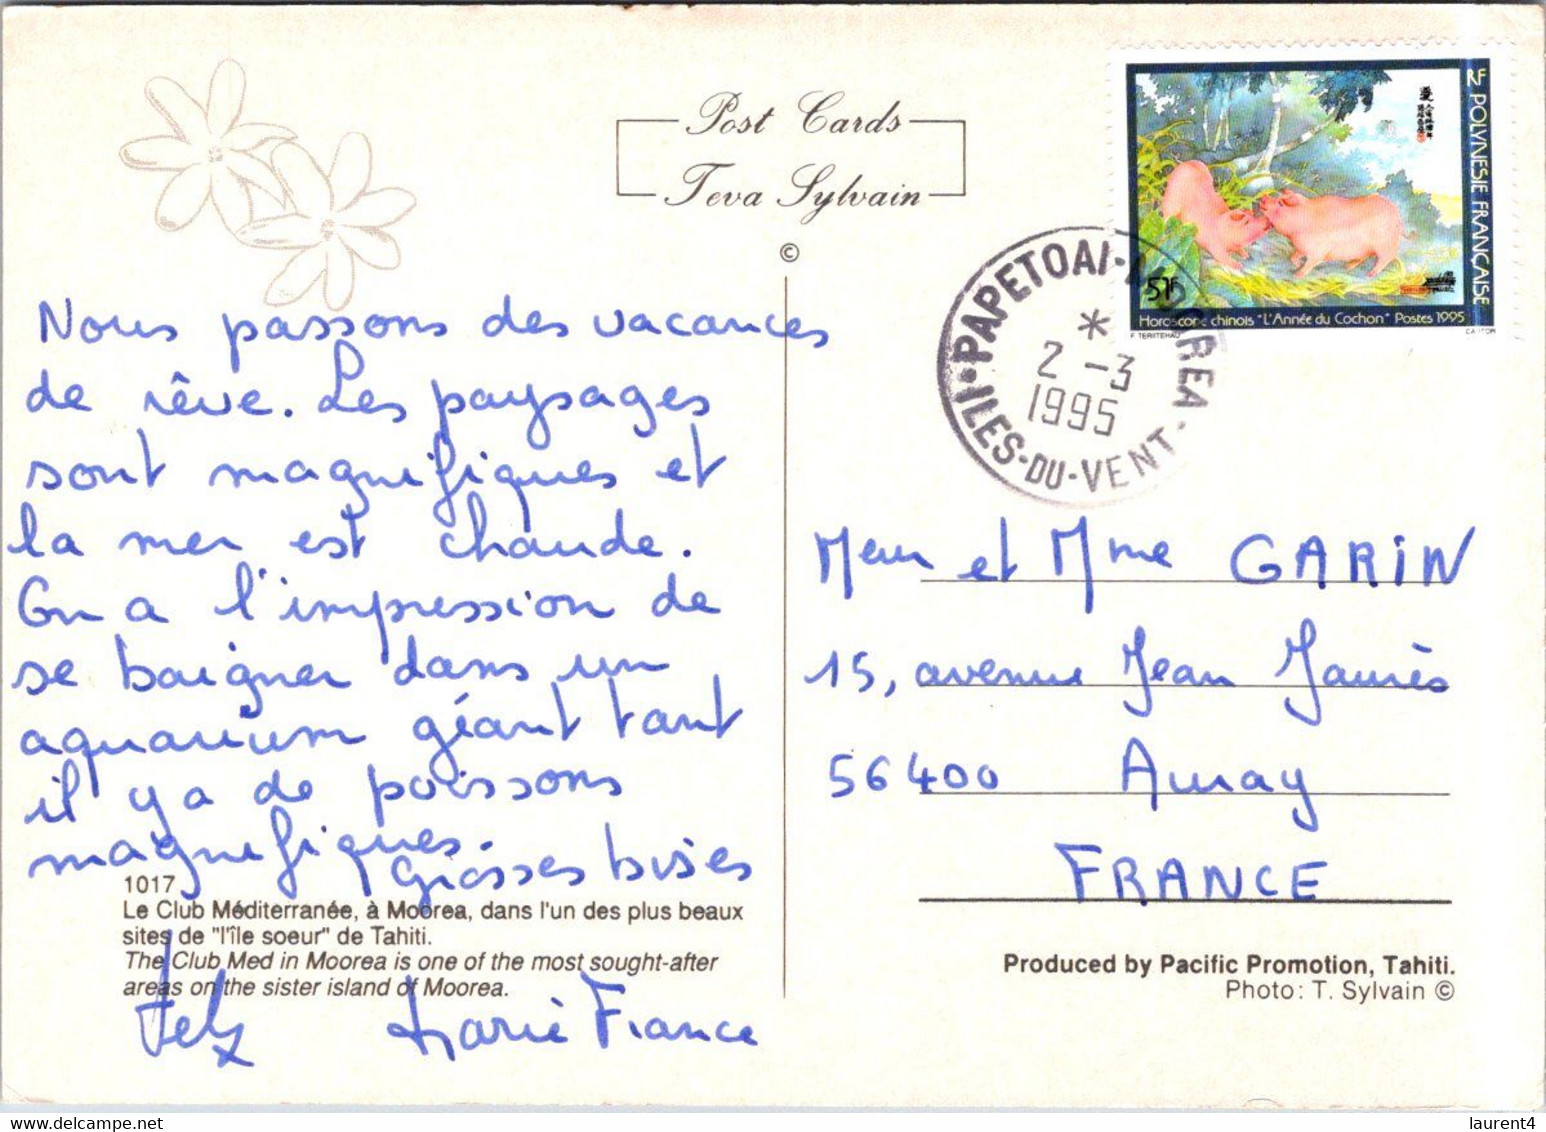 Post Cards
Teva Sylvain
©
RF POLYNESIE FRANÇAISE
51F
Horoscope chinois "L'Année du Cochon" Postes 1995
CARTOR
PAPETOAI-MOOREA
*
2 -3
1995
ILES-DU-VENT
Nous passons des vacances
de rêve. Les paysages
sont magnifiques et
la mer est chaude.
On a l'impression de
se baigner dans un
aquarium géant tant
il y a de poissons
magnifiques.
Grosses bises
Marie France
Meur et Mme GARIN
15, avenue Jean Jaurès
56400 Auray
FRANCE
1017
Le Club Méditerranée, à Moorea, dans l'un des plus beaux
sites de "l'île soeur" de Tahiti.
The Club Med in Moorea is one of the most sought-after
areas on the sister island of Moorea.
Produced by Pacific Promotion, Tahiti.
Photo: T. Sylvain ©
laurent4